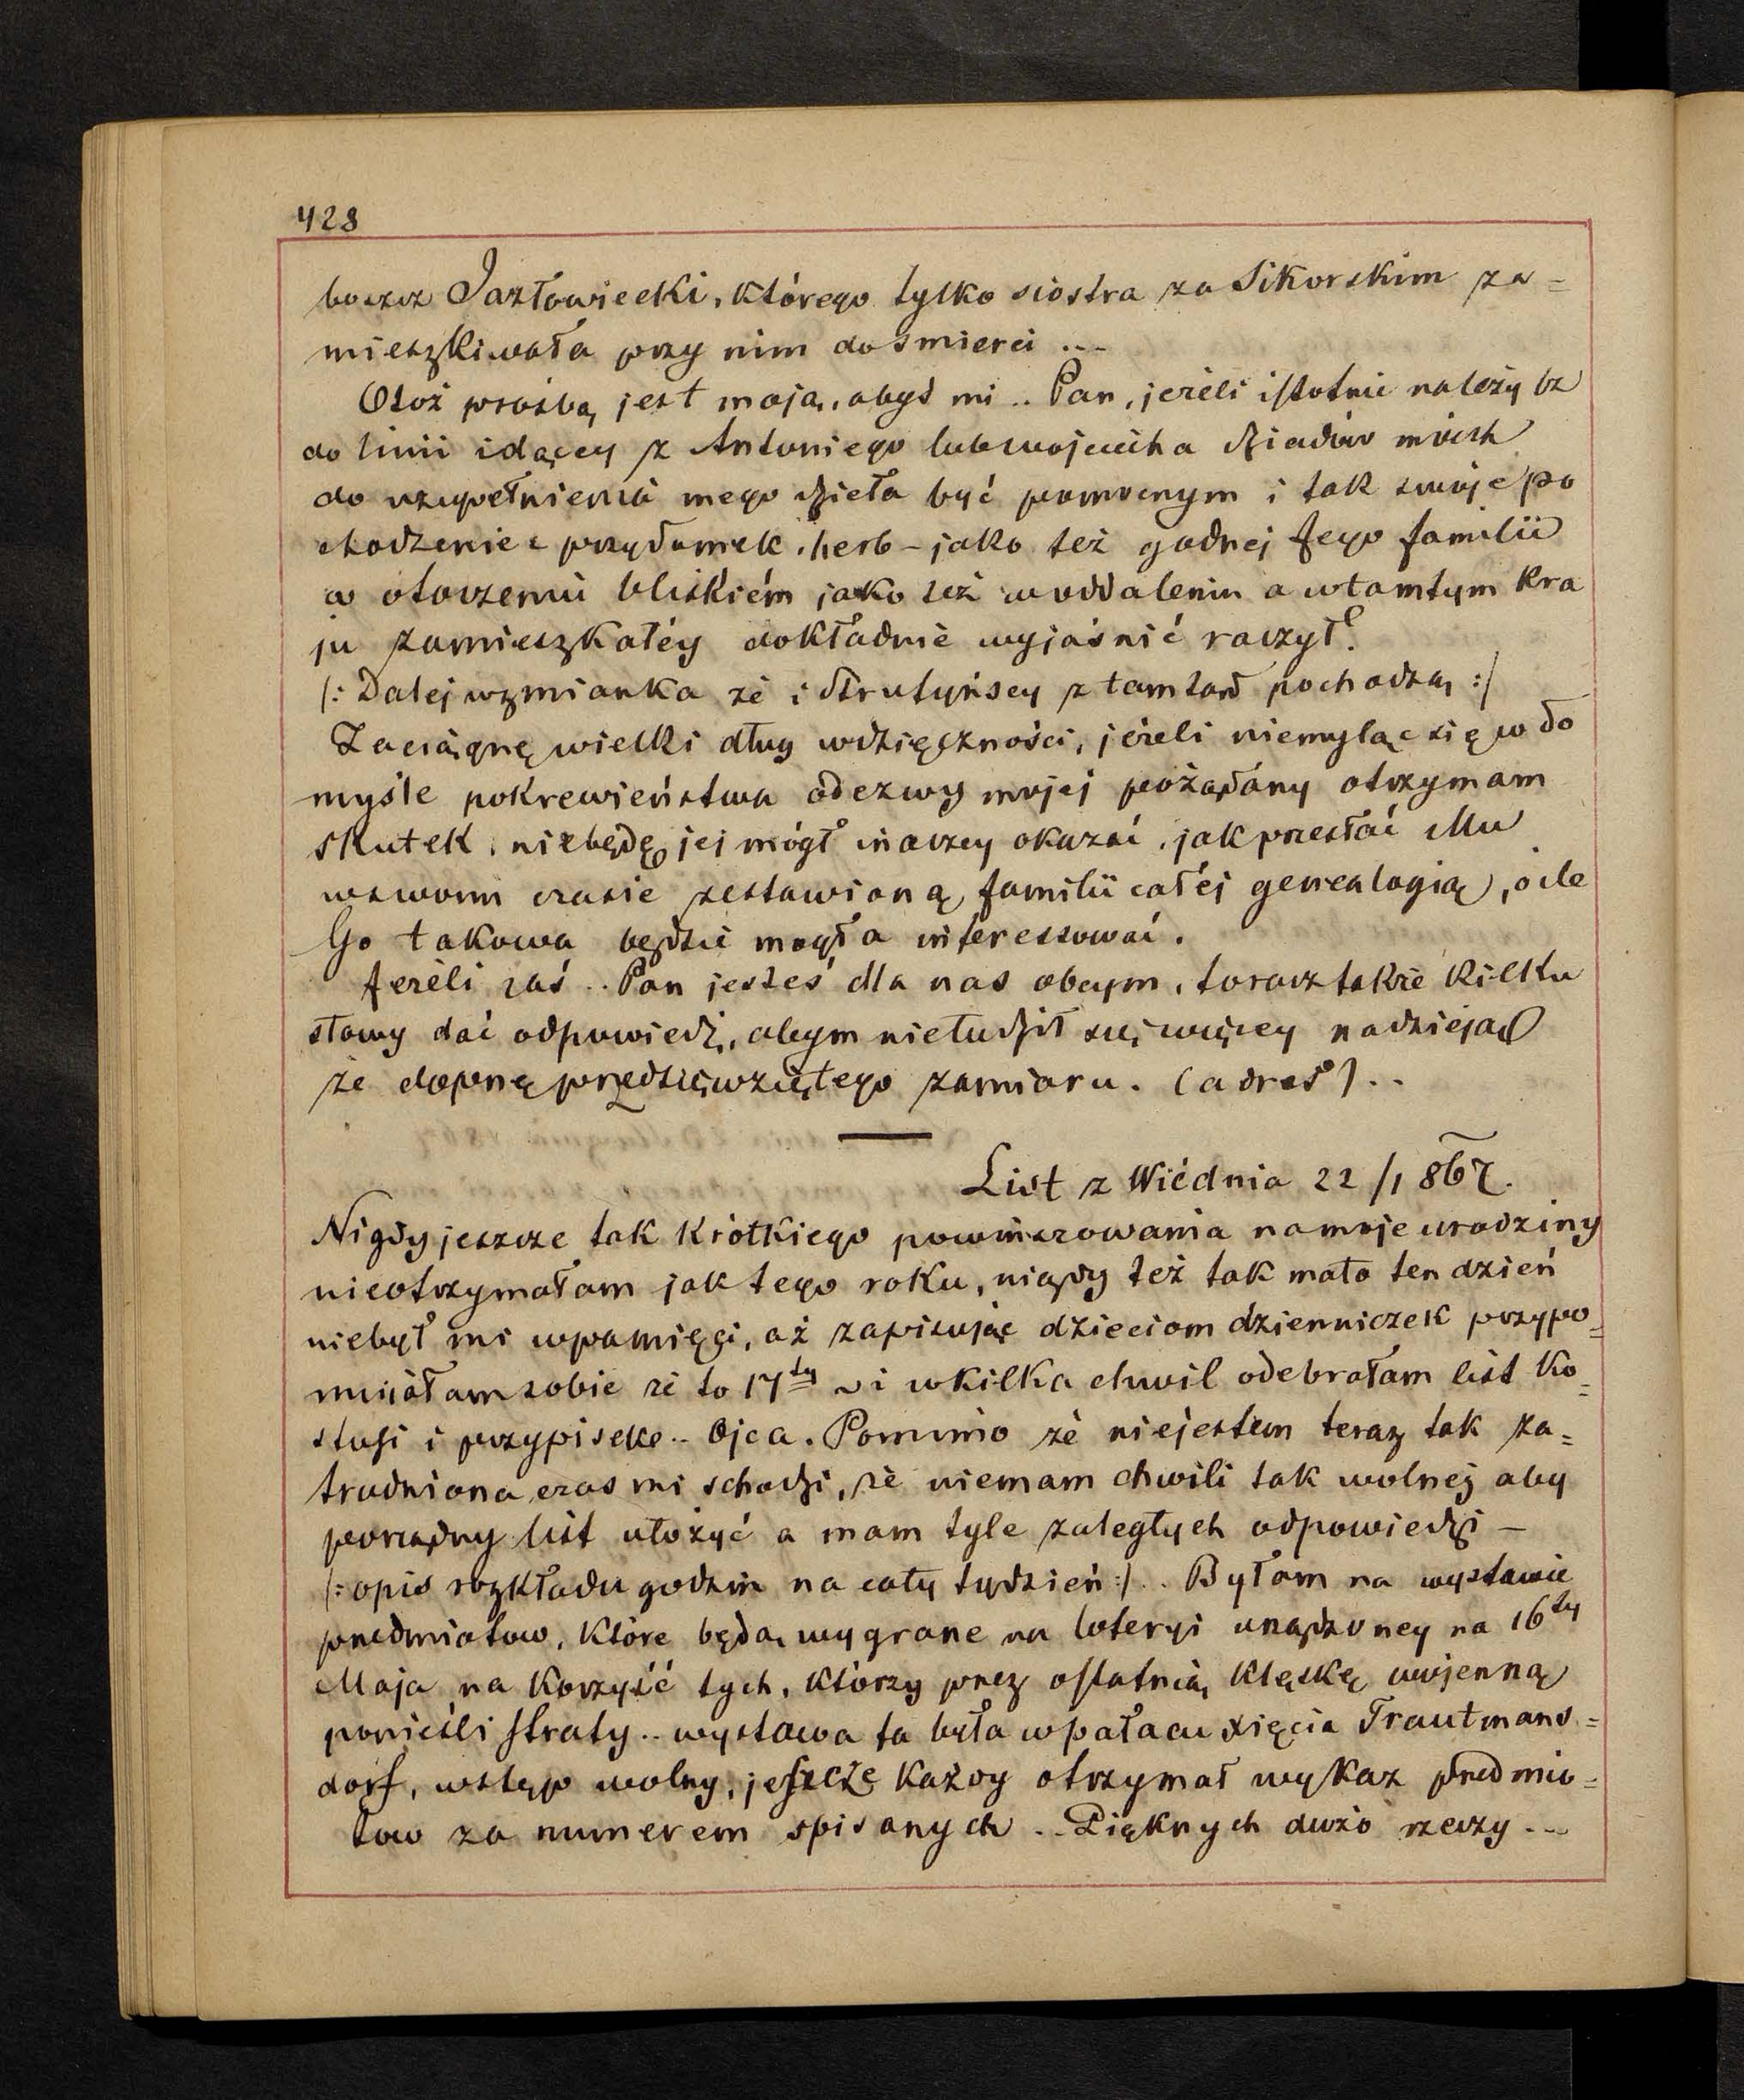 428
boszcz Jazłowiecki, którego tylko siostra za Sikorskim za=
mieszkiwała przy nim do smierci ...
Otoż prośbą jest moją, abyś mi .. Pan, jeżeli istotnie należysz
do linii idącey z Antoniego lub wojciecha dziadów moich
do uzupełnienia mego dzieła być pomocnym i tak swoje po
chodzenie, przydomek, herb - jako też godnej Jego familii
w otoczeniu bliskiém jako też w oddaleniu a w tamtym kra
ju zamieszkałéy dokładnie wyjaśnić raczył.
/: Dalej wzmianka że i Strutyńscy z tamtąd pochodzą :/
Zaciągnę wielki dług wdzięczności, jeżeli niemyląc się w do
myśle pokrewieństwa odezwy mojej pożądany otrzymam
skutek, niebędę jej mógł inaczey okazać, jak przesłać Mu
w swoim czasie zestawioną familii całéj genealogią, o ile
Go takowa będzie mogła interessować.
Jeżeli zaś .. Pan jesteś dla nas obcym, to racz także kilku
słowy dać odpowiedź, abym nie łudził się więcey nadzieją
że dopnę przedsięwziętego zamiaru. (adres) ..
List z Wiédnia 22/1 867.
Nigdy jeszcze tak krótkiego powinszowania na moje urodziny
nieotrzymałam jak tego roku, nigdy też tak mało ten dzień
niebył mi w pamięci, aż zapisując dzieciom dzienniczek przypo=
mniałam sobie że to 17ty i w kilka chwil odebrałam list Ko=
stusi i przypisek .. Ojca. Pomimo że niejestem teraz tak za=
trudniona czas mi schodzi, że niemam chwili tak wolnej aby
porządny list ułożyć a mam tyle zaległych odpowiedzi -
/: opis rozkładu godzin na cały tydzień :/ .. Byłam na wystawie
przedmiotow, które będą wygrane na loteryi urządzoney na 16ty
Maja na korzyść tych, którzy przez ostatnią klęskę wojenną
ponieśli straty .. wystawa ta była w pałacu xięcia Trautmans=
dorf, wstęp wolny, jeszcze każdy otrzymał wykaz przedmio=
tow za numerem spisanych .. Pięknych dużo rzeczy ...